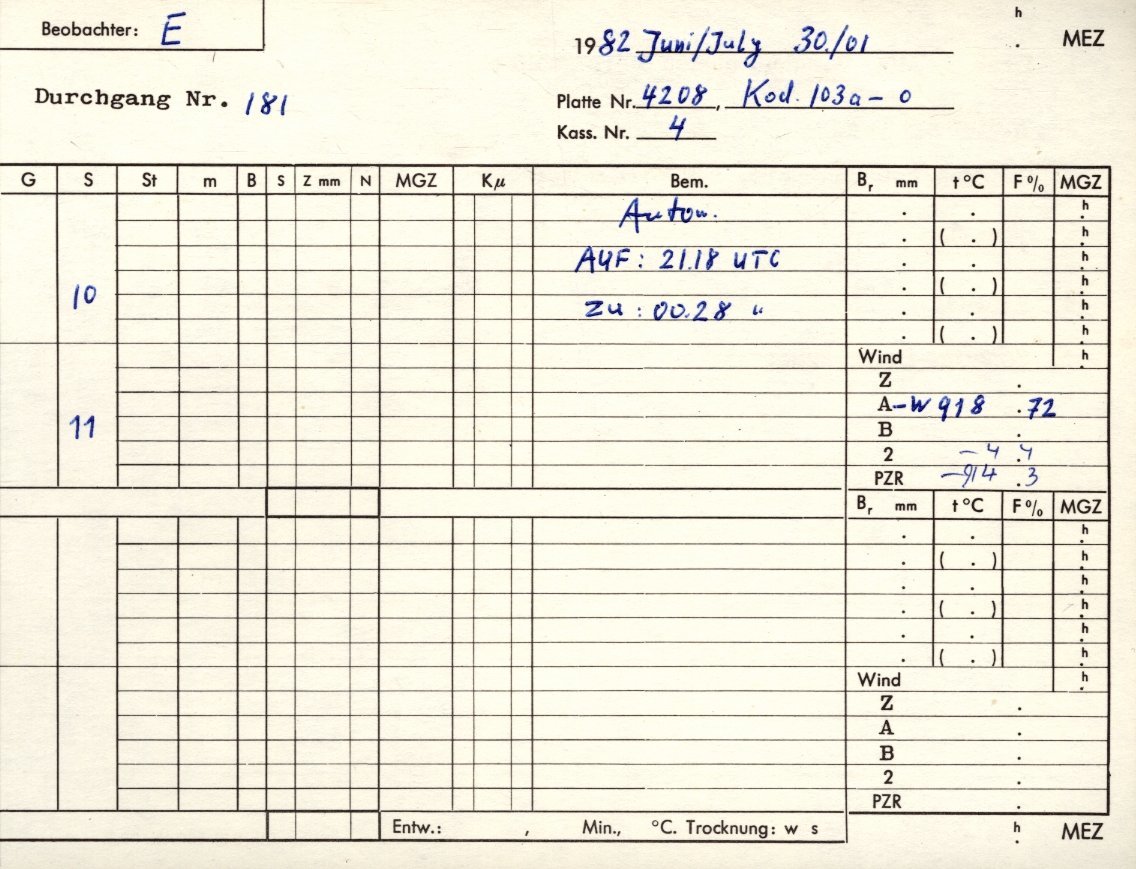 Beobachter: E
1982 Juni/July 30./01 h . MEZ
Durchgang Nr. 181
Platte Nr. 4208, Kod. 103a-0
Kass. Nr. 4
G S St m B S Z mm N MGZ Kμ Bem. Br mm t °C F % MGZ
Autom. . . h
. ( . ) h
AUF: 21.18 UTC . . h
10 . ( . ) h
ZU: 00.28 " . . h
. ( . ) h
Wind h
Z .
11 A -W 918 .72
B .
2 -4 .4
PZR -914 .3
Br mm t °C F % MGZ
. . h
. ( . ) h
. . h
. ( . ) h
. . h
. ( . ) h
Wind h
Z .
A .
B .
2 .
PZR .
Entw.: , Min., °C. Trocknung: w s h . MEZ